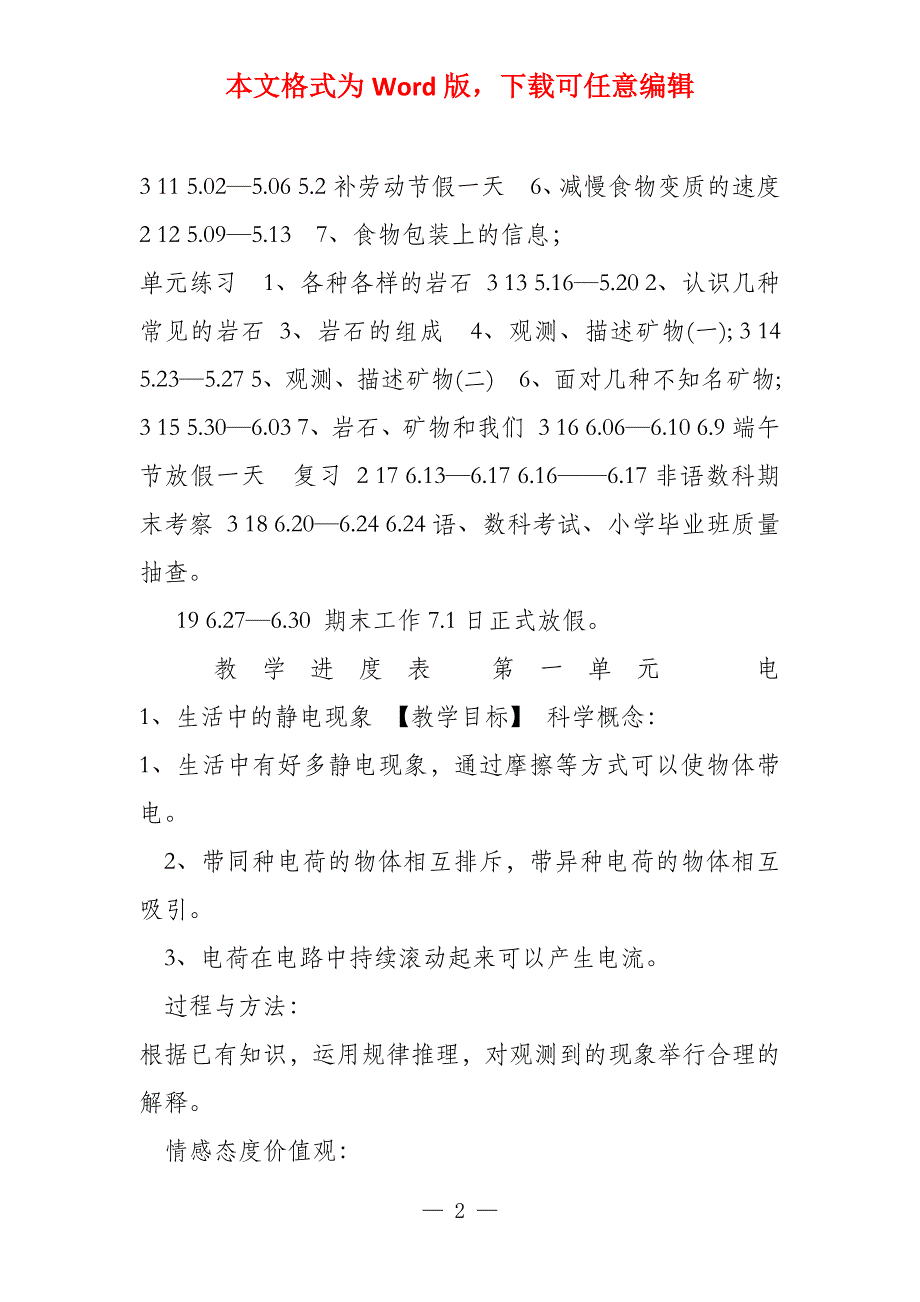 本文格式为 Word 版，下载可任意编辑
3 11 5.02—5.06 5.2 补劳动节假一天　6、减慢食物变质的速度
2 12 5.09—5.13　7、食物包装上的信息；
单元练习　1、各种各样的岩石 3 13 5.16—5.20 2、认识几种
常见的岩石 3、岩石的组成　4、观测、描述矿物(一); 3 14
5.23—5.27 5、观测、描述矿物(二)　6、面对几种不知名矿物;
3 15 5.30—6.03 7、岩石、矿物和我们 3 16 6.06—6.10 6.9 端午
节放假一天　复习 2 17 6.13—6.17 6.16——6.17 非语数科期
末考察 3 18 6.20—6.24 6.24 语、数科考试、小学毕业班质量
抽查。
19 6.27—6.30 期末工作 7.1 日正式放假。
教 学 进 度 表　第 一 单 元　电
1、生活中的静电现象 【教学目标】 科学概念：
1、生活中有好多静电现象，通过摩擦等方式可以使物体带
电。
2、带同种电荷的物体相互排斥，带异种电荷的物体相互
吸引。
3、电荷在电路中持续滚动起来可以产生电流。
过程与方法：
根据已有知识，运用规律推理，对观测到的现象举行合理的
解释。
情感态度价值观：
— 2 —